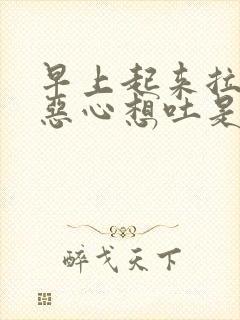 早上起来拉
恶心想吐是
醉戈天下